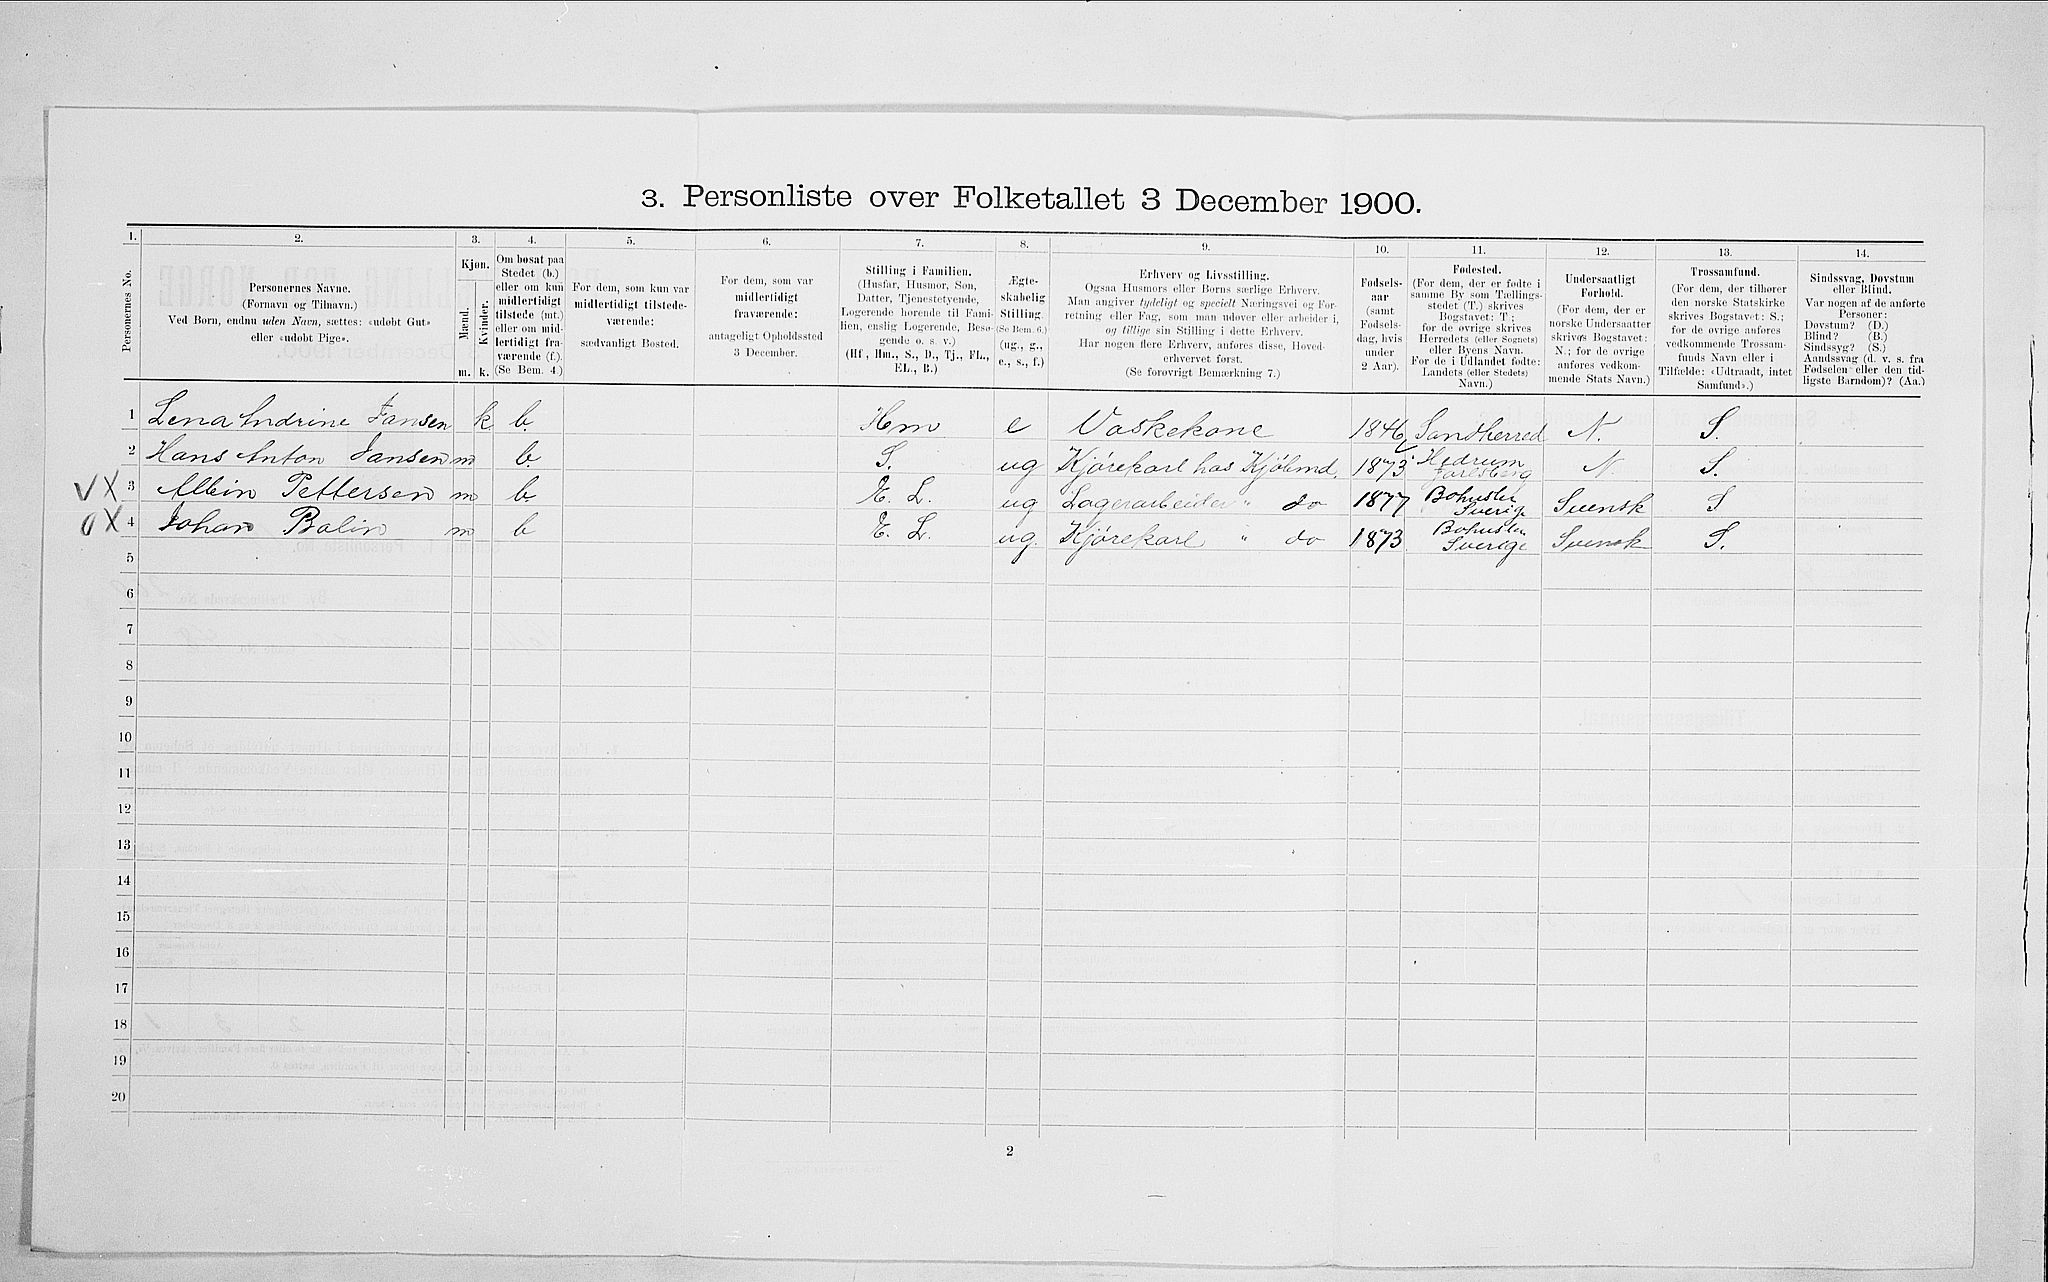 3. Personliste over Folketallet 3 December 1900.
1. 2. 3. 4. 5. 6. 7. 8. 9. 10. 11. 12. 13. 14.
Personernes No.
Personernes Navne.
(Fornavn og Tilnavn.)
Ved Børn, endnu uden Navn, sættes: «udøbt Gut»
eller «udøbt Pige».
Kjøn.
Mænd.
Kvinder.
m. k.
Om bosat paa
Stedet (b.)
eller om kun
midlertidigt
tilstede (mt.)
eller om mid-
lertidigt fra-
værende (f.).
(Se Bem. 4.)
For dem, som kun var
midlertidigt tilstede-
værende:
sædvanligt Bosted.
For dem, som var
midlertidigt
fraværende:
antageligt Opholdssted
3 December.
Stilling i Familien.
(Husfar, Husmor, Søn,
Datter, Tjenestetyende,
Logerende hørende til Fami-
lien, enslig Logerende, Besø-
gende o. s. v.)
(Hf, Hm., S., D., Tj., FL.,
EL., B.)
Ægte-
skabelig
Stilling.
(Se Bem. 6.)
(ug., g.,
e., s., f.)
Erhverv og Livsstilling.
Ogsaa Husmors eller Børns særlige Erhverv.
Man angiver tydeligt og specielt Næringsvei og For-
retning eller Fag, som man udøver eller arbeider i,
og tillige sin Stilling i dette Erhverv.
Har nogen flere Erhverv, anføres disse, Hoved-
erhvervet først.
(Se forøvrigt Bemærkning 7.)
Fødsels-
aar
(samt
Fødsels-
dag, hvis
under
2 Aar).
Fødested.
(For dem, der er fødte i
samme By som Tællings-
stedet (T.) skrives
Bogstavet: T.;
for de øvrige skrives
Herredets (eller Sognets)
eller Byens Navn.
For de i Udlandet fødte:
Landets (eller Stedets)
Navn.)
Undersaatligt
Forhold.
(For dem, der er
norske Undersaatter
skrives Bogstavet:
N.; for de øvrige
anføres vedkom-
mende Stats Navn.)
Trossamfund.
(For dem, der tilhører
den norske Statskirke
skrives Bogstavet: S.;
for de øvrige anføres
vedkommende Trossam-
funds Navn eller i
Tilfælde: «Udtraadt, intet
Samfund».)
Sindssvag, Døvstum
eller Blind.
Var nogen af de anførte
Personer:
Døvstum? (D.)
Blind? (B.)
Sindssyg? (S.)
Aandssvag (d. v. s. fra
Fødselen eller den tid-
ligste Barndom)? (Aa.)
1 Lena Andrine Jansen k b. Hm e Vaskekone 1846 Sandherred N. S.
2 Hans Anton Jansen m b. S. ug Kjørekarl hos Kjøbmd. 1873 Hedrum Jarlsberg N. S.
VX 3 Albin Pettersen m b. E. L. ug Lagerarbeider " do 1877 Bohuslen Sverige Svensk S
0X 4 Johan Bolin m b E. L. ug. Kjørekarl " do 1873 Bohuslen Sverige Svensk S.
5
6
7
8
9
10
11
12
13
14
15
16
17
18
19
20
2